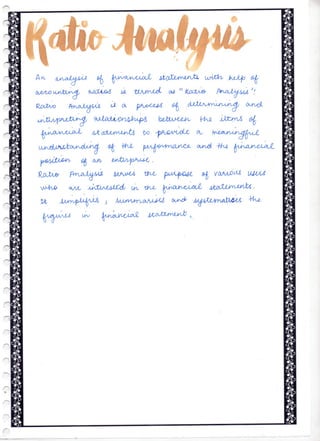 Ratio Analysis
An analysis of financial statements with help of
accounting ratios is termed as "Ratio Analysis".
Ratio Analysis is a process of determining and
interpreting relationships between the items of
financial statements to provide a meaningful
understanding of the performance and the financial
position of an enterprise.
Ratio Analysis serves the purpose of various users
who are interested in the financial statements.
It simplifies, summarises and systematises the
figures in financial statement.